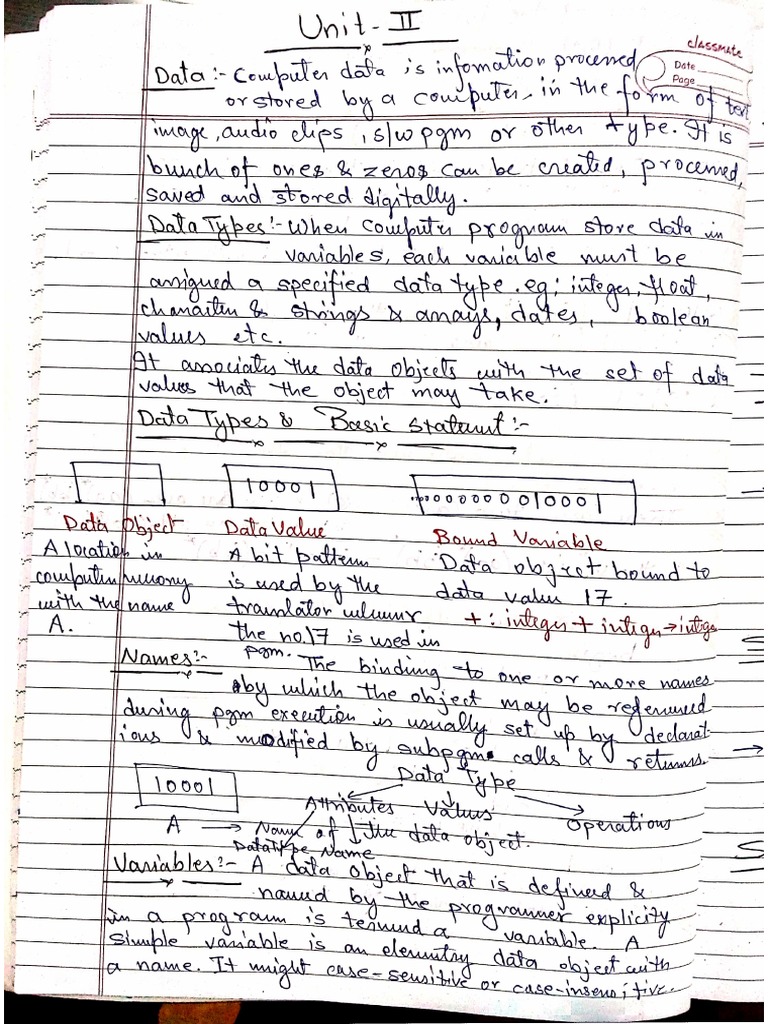 Unit - II
classmate
Date
Page
Data :- Computer data is information processed
or stored by a computer in the form of text
image, audio clips, s/w pgm or other type. It is
bunch of ones & zeros can be created, processed,
saved and stored digitally.
Data Types :- When computer program store data in
variables, each variable must be
assigned a specified data type. eg; integer, float,
character & strings & arrays, dates, boolean
values etc.
It associates the data objects with the set of data
values that the object may take.
Data Types & Basic Statement :-
10001
....0000000010001
Data Object Data Value Bound Variable
A location in A bit pattern Data object bound to
computer memory is used by the data value 17.
with the name translator whenever + : integer + integer → integer
A. the no. 17 is used in
pgm.
Names :- The binding to one or more names
by which the object may be referenced
during pgm execution is usually set up by declarat-
ions & modified by subpgm calls & returns.
10001
Data Type
Attributes Values Operations
A → Name of the data object.
Data Type Name
Variables :- A data object that is defined &
named by the programmer explicity
in a program is termed a variable. A
simple variable is an elementry data object with
a name. It might case-sensitive or case-insensitive.